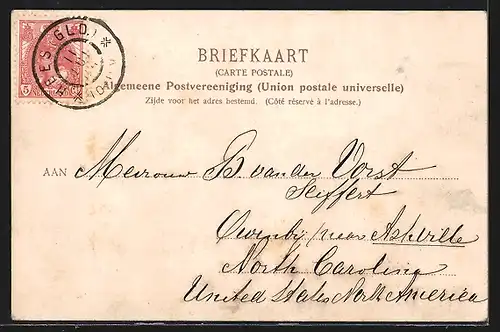 BRIEFKAART
(CARTE POSTALE)
Algemeene Postvereeniging (Union postale universelle)
Zijde voor het adres bestemd. (Côté réservé à l'adresse.)
AAN Mevrouw B. van der Vorst
Seiffert
Owenby/near Ashville
North Carolina
United States North America
5
GLD.)